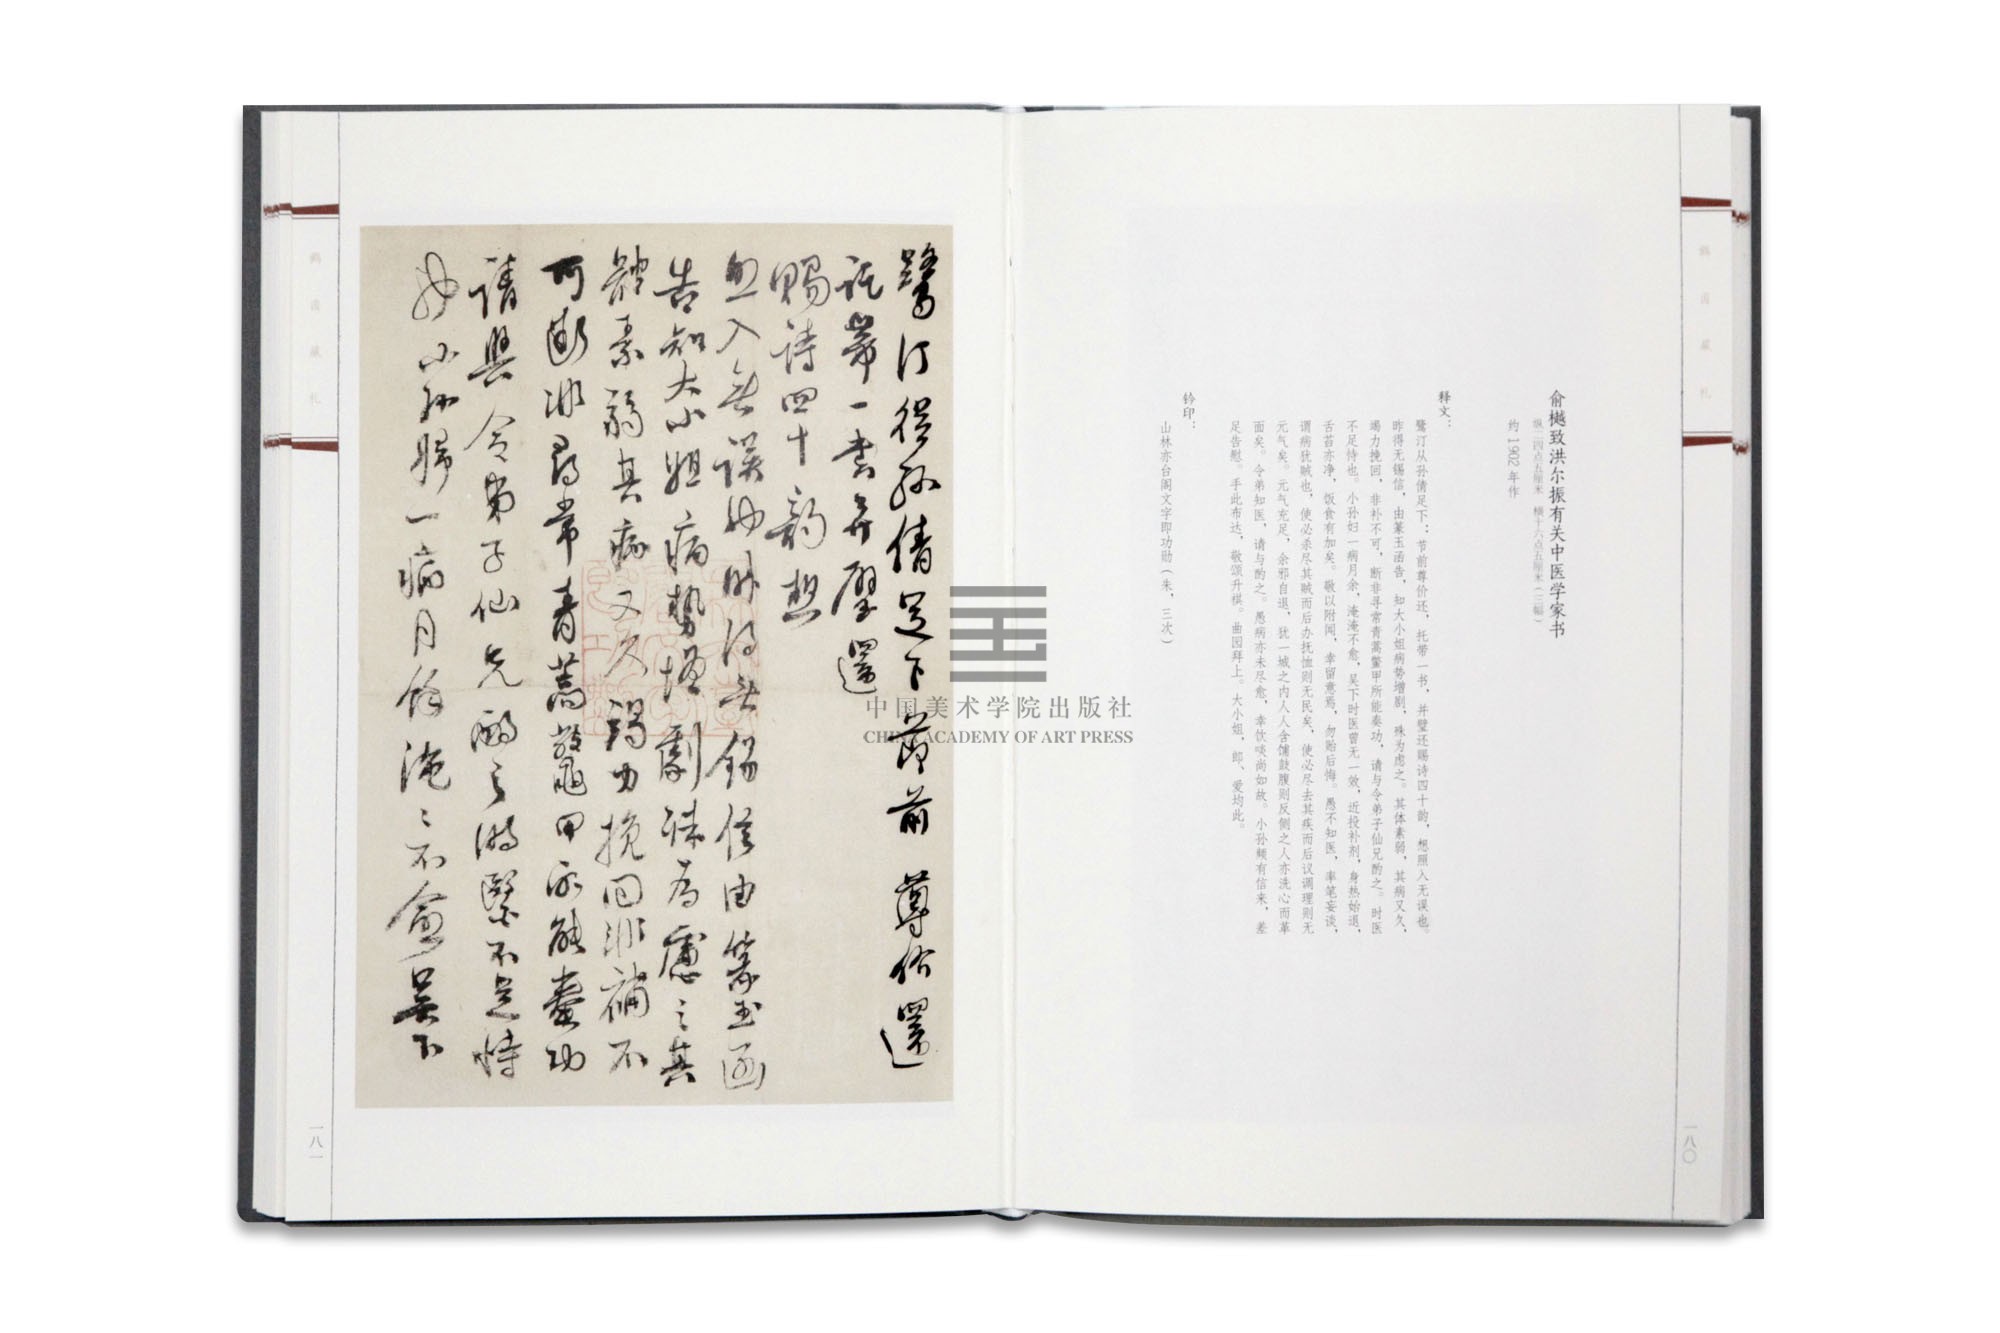 俞樾致洪尔振有关中医学家书
纵二四点五厘米 横十六点五厘米（三幅）
约1902年作
释文：
鹭汀从孙倩足下：节前尊价还，托带一书，并璧还赐诗四十韵，想照入无误也。
昨得无锡信，由篆玉函告，知大小姐病势增剧，殊为虑之。其体素弱，其病又久，
竭力挽回，非补不可，断非寻常青蒿鳖甲所能奏功，请与令弟子仙兄酌之。时医
不足恃也。小孙妇一病月余，淹淹不愈，吴下时医曾无一效，近投补剂，身热始退，
舌苔亦净，饭食有加矣。敬以附闻，幸留意焉，勿贻后悔。愚不知医，率笔妄谈，
谓病犹贼也，使必杀尽其贼而后办抚恤则无民矣，使必尽去其疾而后议调理则无
元气矣。元气充足，余邪自退，犹一城之内人人含哺鼓腹则反侧之人亦洗心而革
面矣。令弟知医，请与酌之。愚病亦未尽愈，幸饮啖尚如故。小孙频有信来，差
足告慰。手此布达，敬颂升祺。曲园拜上。大小姐、郎、爱均此。
钤印：
山林亦台阁文字即功勋（朱，三次）
鹤园藏札
一八〇
鷺汀從孫倩足下節前尊价還
託帶一書并璧還
賜詩四十韵想
照入無誤也昨得無錫信由篆玉函
告知大小姐病勢增劇殊為慮之其
體素弱其病又久竭力挽回非補不
可斷非尋常青蒿鼈甲所能奏功
請與令弟子仙兄酌之時醫不足恃
也小孫婦一病月餘淹〻不愈吳下
鹤园藏札
一八一
中国美术学院出版社
CHINA ACADEMY OF ART PRESS